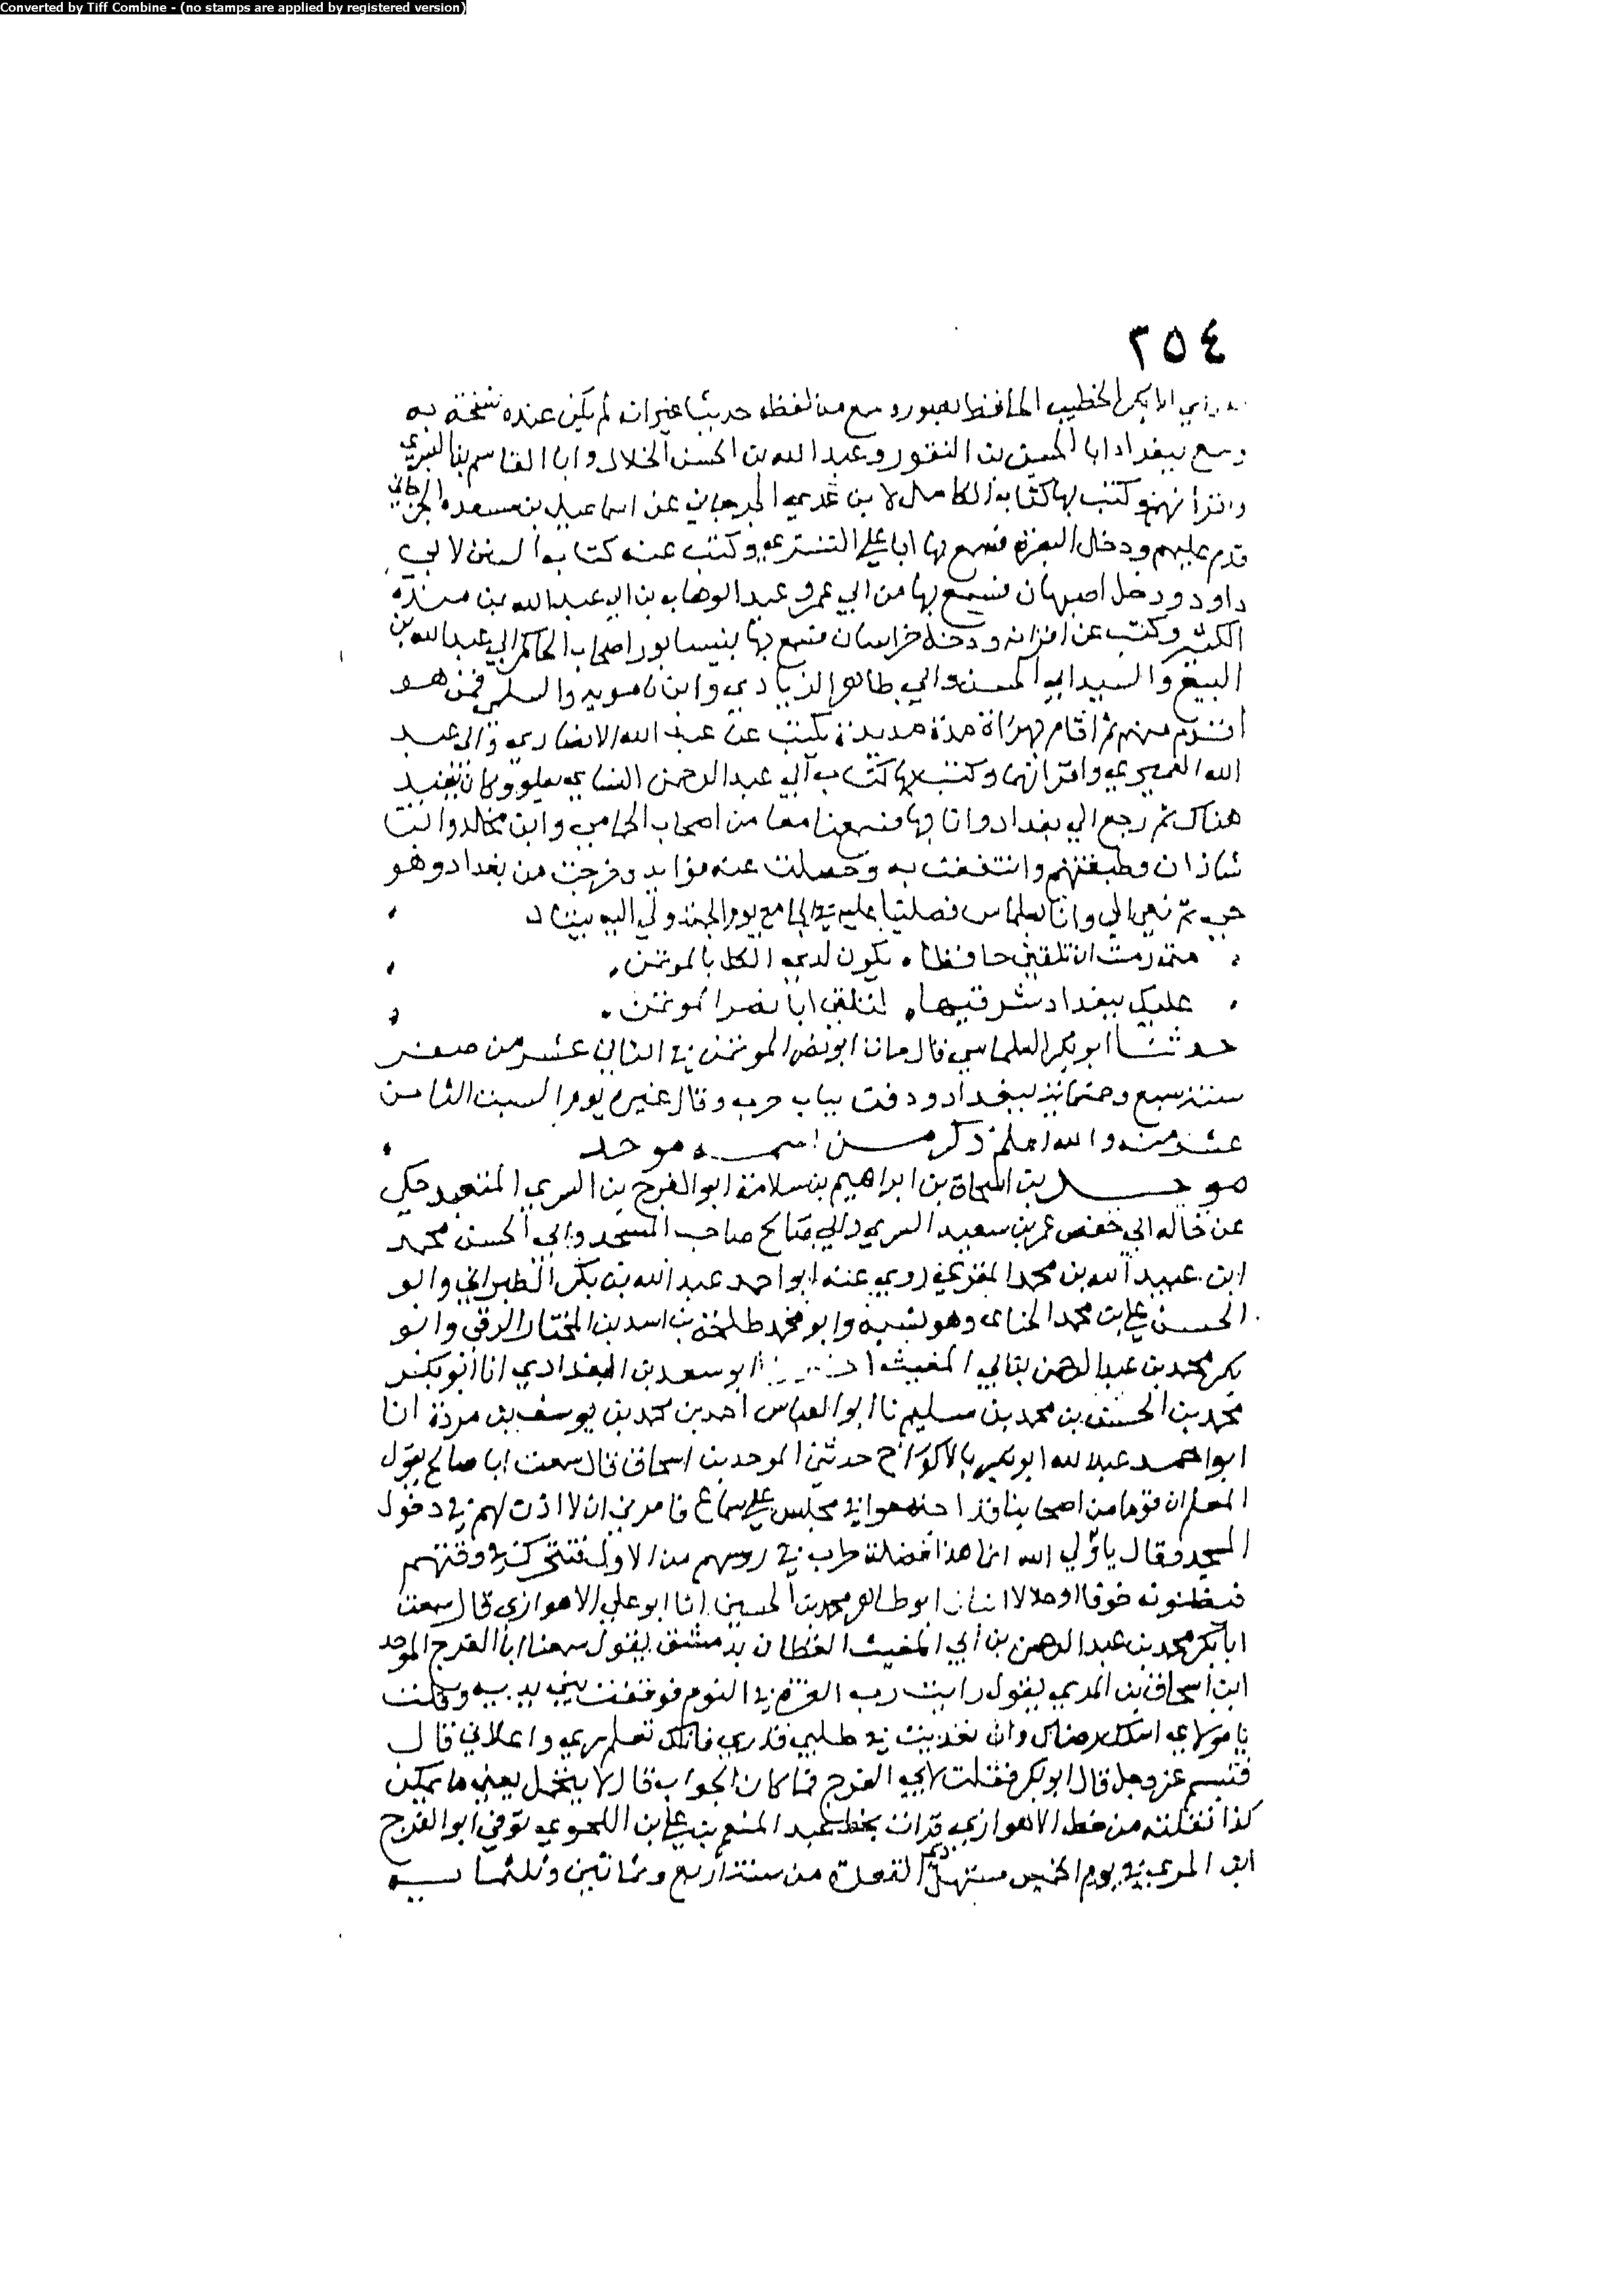 Converted by Tiff Combine - (no stamps are applied by registered version)
٢٥٤
ابا بكر الخطيب الحافظ بصور وسمع من لفظه حديثا غير انه لم يكن عنده نسخة به
وسمع ببغداد ابا الحسين بن النقور وعبد الله بن الحسن الخلال وابا القاسم بن البسري
واقرانهم وكتب بها كتاب الكامل لابن عدي الجرجاني عن اسماعيل بن مسعدة الجرجاني
قدم عليهم ودخل البصرة فسمع بها ابا علي التستري وكتب عنه كتاب السنن لابي
داود ودخل اصبهان فسمع بها من ابي عمرو عبد الوهاب بن ابي عبد الله بن منده
الكثير وكتب عن اقرانه ودخل خراسان فسمع بها بنيسابور اصحاب الحاكم ابي عبد الله بن
البيع والسيد ابي الحسن وابي طاهر الزيادي وابن بامويه والسلمي فمن هو
اقدم منهم ثم اقام بهراة مدة مديدة يكتب عن عبد الله الانصاري وابي عبد
الله العميري واقرانهما وكتب بها كتاب ابي عبد الرحمن النسائي بعلو وكان يفيد
هناك ثم رجع الي بغداد وانا بها فسمعنا معا من اصحاب الحمامي وابن مخلد وابن
شاذان وطبقتهم وانتفعت به وحصلت عنه فوايد وخرجت من بغداد وهو
حي ثم نعي الي وانا بسلماس فصلينا عليه في الجامع يوم الجمعة ولي اليه بيتان
متى رمت ان تلقى حافظا . يكون لدى الكل بالموتمن .
عليك ببغداد شرقيها . لتلقى ابا نصر الموتمن .
حدثنا ابو بكر السلماسي قال مات ابو نصر الموتمن في الثاني عشر من صفر
سنة سبع وخمسمائة ببغداد ودفن بباب حرب وقال غيره يوم السبت الثامن
عشر منه والله اعلم ذكر من اسمه موحد
موحد بن اسحاق بن ابراهيم بن سلامة ابو الفرج بن البري المتعبد حكى
عن خاله ابي حفص عمر بن سعيد البري وابي صالح صاحب المسجد وابي الحسن محمد
ابن عبيد الله بن محمد المقري روي عنه ابو احمد عبد الله بن بكر الطبراني وابو
الحسن علي بن محمد الحناى وهو نسبه وابو محمد طلحة بن اسد بن المختار الرقي وابو
بكر محمد بن عبد الرحمن بن ابي المغيث ابو سعد بن البغدادي انا ابو بكر
محمد بن الحسين بن محمد بن سليم نا ابو العباس احمد بن محمد بن يوسف بن مردة انا
ابو احمد عبد الله ابو بكر بالاكواخ حدثني الموحد بن اسحاق قال سمعت ابا صالح يقول
المعلم ان قوما من اصحابنا قد اجتمعوا في مجلس على سماع فامرني ان لا اذن لهم في دخول
المسجد وقال يا ولي الله انما هذا فضلة طرب في روسهم من الاول فتتحرك في وقتهم
فيظنونه خوفا او حالا انبانا ابو طاهر محمد بن الحسين انا ابو علي الاهوازي قال سمعت
ابا بكر محمد بن عبد الرحمن بن ابي المغيث القطان بدمشق يقول سمعنا ابا الفرج الموحد
ابن اسحاق بن البري يقول رايت رب العزة في النوم فوقفت بين يديه وقلت
يا مولاي اسلك رضاك وان تعذبت في طلبي قدري فانك تعلم سري واعلاني قال
فتبسم عز وجل قال ابو بكر فقلت لابي الفرج فما كان الجواب قال لا يتحمل يعني ما يمكن
كذا نقلته من خط الاهوازي قرات بخط عبد المنعم بن علي بن النحوي توفي ابو الفرج
ابن البري في يوم الخميس مستهل ذي القعدة من سنة اربع وثمانين وثلثمائة